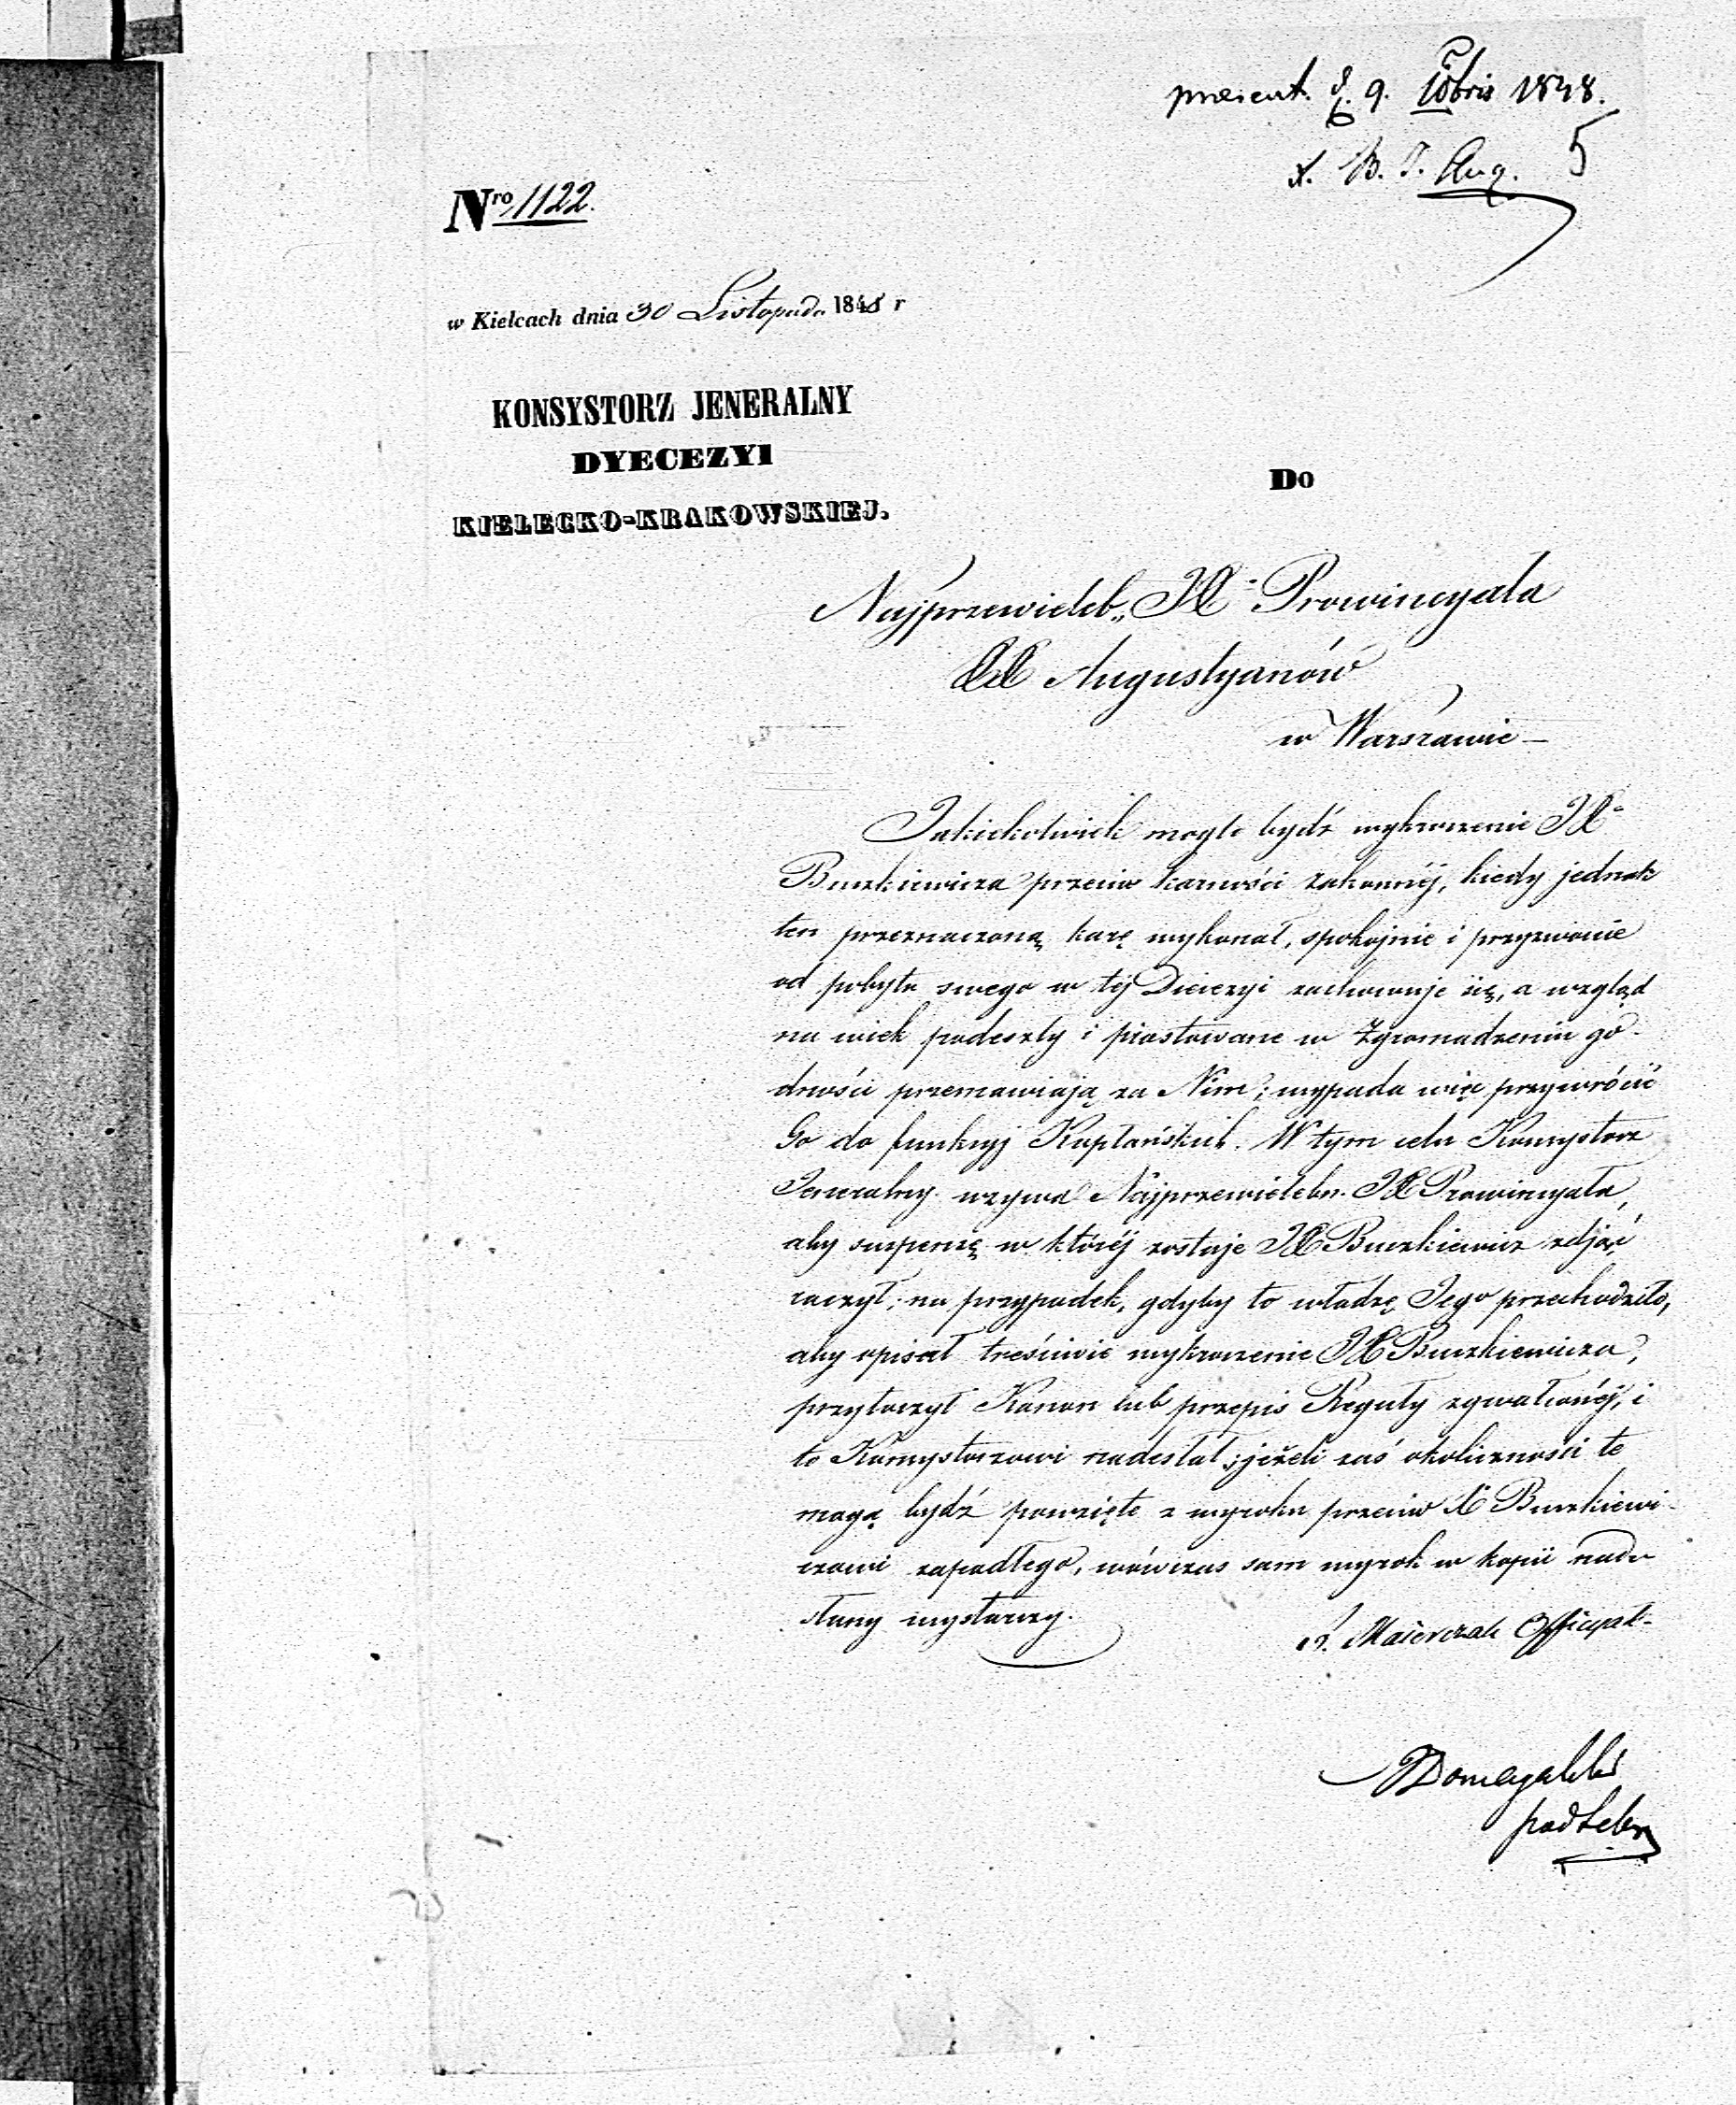 present. d. 9. Xbris 1848.
X. B. T. Aug. 5
Nro 1122.
w Kielcach dnia 30 Listopada 1848 r
KONSYSTORZ JENERALNY
DYECEZYI
KIELECKO-KRAKOWSKIEJ.
Do
Najprzewieleb„ JX Prowincyała
XX Augustyanów
w Warszawie —
Jakiekolwiek mogło bydź wykroczenie JX
Buszkiewicza przeciw karności zakonnéj, kiedy jednak
ten przeznaczoną karę wykonał, spokojnie i przyzwoicie
od pobytu swego w téj Diecezyi zachowuje się, a wzgląd
na wiek podeszły i piastowane w Zgromadzeniu go-
dności przemawiają za Nim; wypada więc przywrócić
Go do funkcyj Kapłańskich. W tym celu Konsystorz
Jeneralny wzywa Najprzewielebn. JX Prowincyała,
aby suspensę w któréj zostaje JX Buszkiewicz zdjąć
raczył; na przypadek, gdyby to władzę Jego przechodziło,
aby opisał treściwie wykroczenie JX Buszkiewicza,
przytoczył Kanon lub przepis Reguły zgwałconéj, i
to Konsystorzowi nadesłał; jeżeli zaś okoliczności te
mogą bydź powzięte z wyroku przeciw X Buszkiewi-
czowi zapadłego, wówczas sam wyrok w kopii nade
słany wystarczy.
Maierczak Officyał
Domagalski